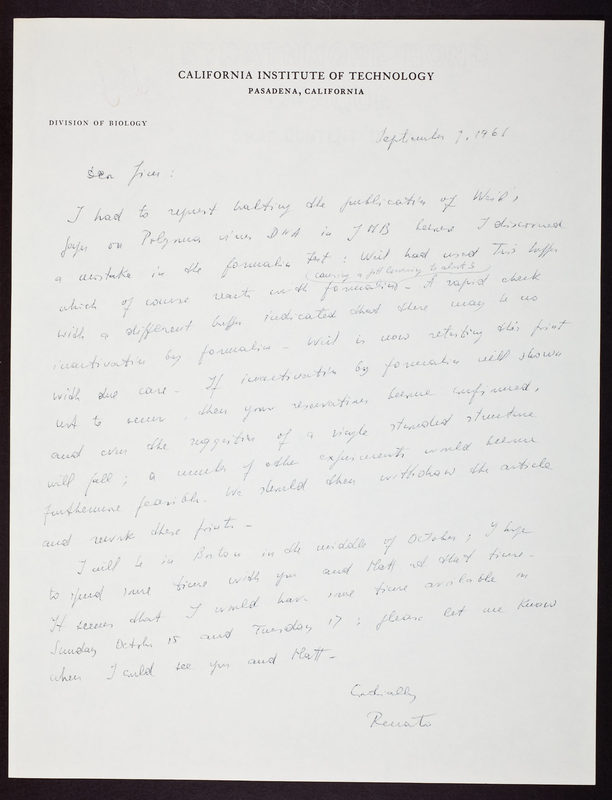 CALIFORNIA INSTITUTE OF TECHNOLOGY
PASADENA, CALIFORNIA
DIVISION OF BIOLOGY
September 7, 1961
Dear Jim:
I had to request halting the publication of Weil's
paper on Polyoma virus DNA in JMB because I discovered
a mistake in the formalin test: Weil had used Tris buffer
causing a pH lowering to about 3
which of course reacts with formalin - A rapid check
with a different buffer indicated that there may be no
inactivation by formalin - Weil is now retesting this point
with due care - If inactivation by formalin will shown
not to occur, then your reservations become confirmed,
and even the suggestion of a single stranded structure
will fall; a number of other experiments would become
furthermore feasible. We should then withdraw the article
and rework these points -
I will be in Boston in the middle of October; I hope
to spend some time with you and Matt at that time -
It seems that I would have some time available on
Sunday October 15 and Tuesday 17; please let me know
when I could see you and Matt -
Cordially
Renato